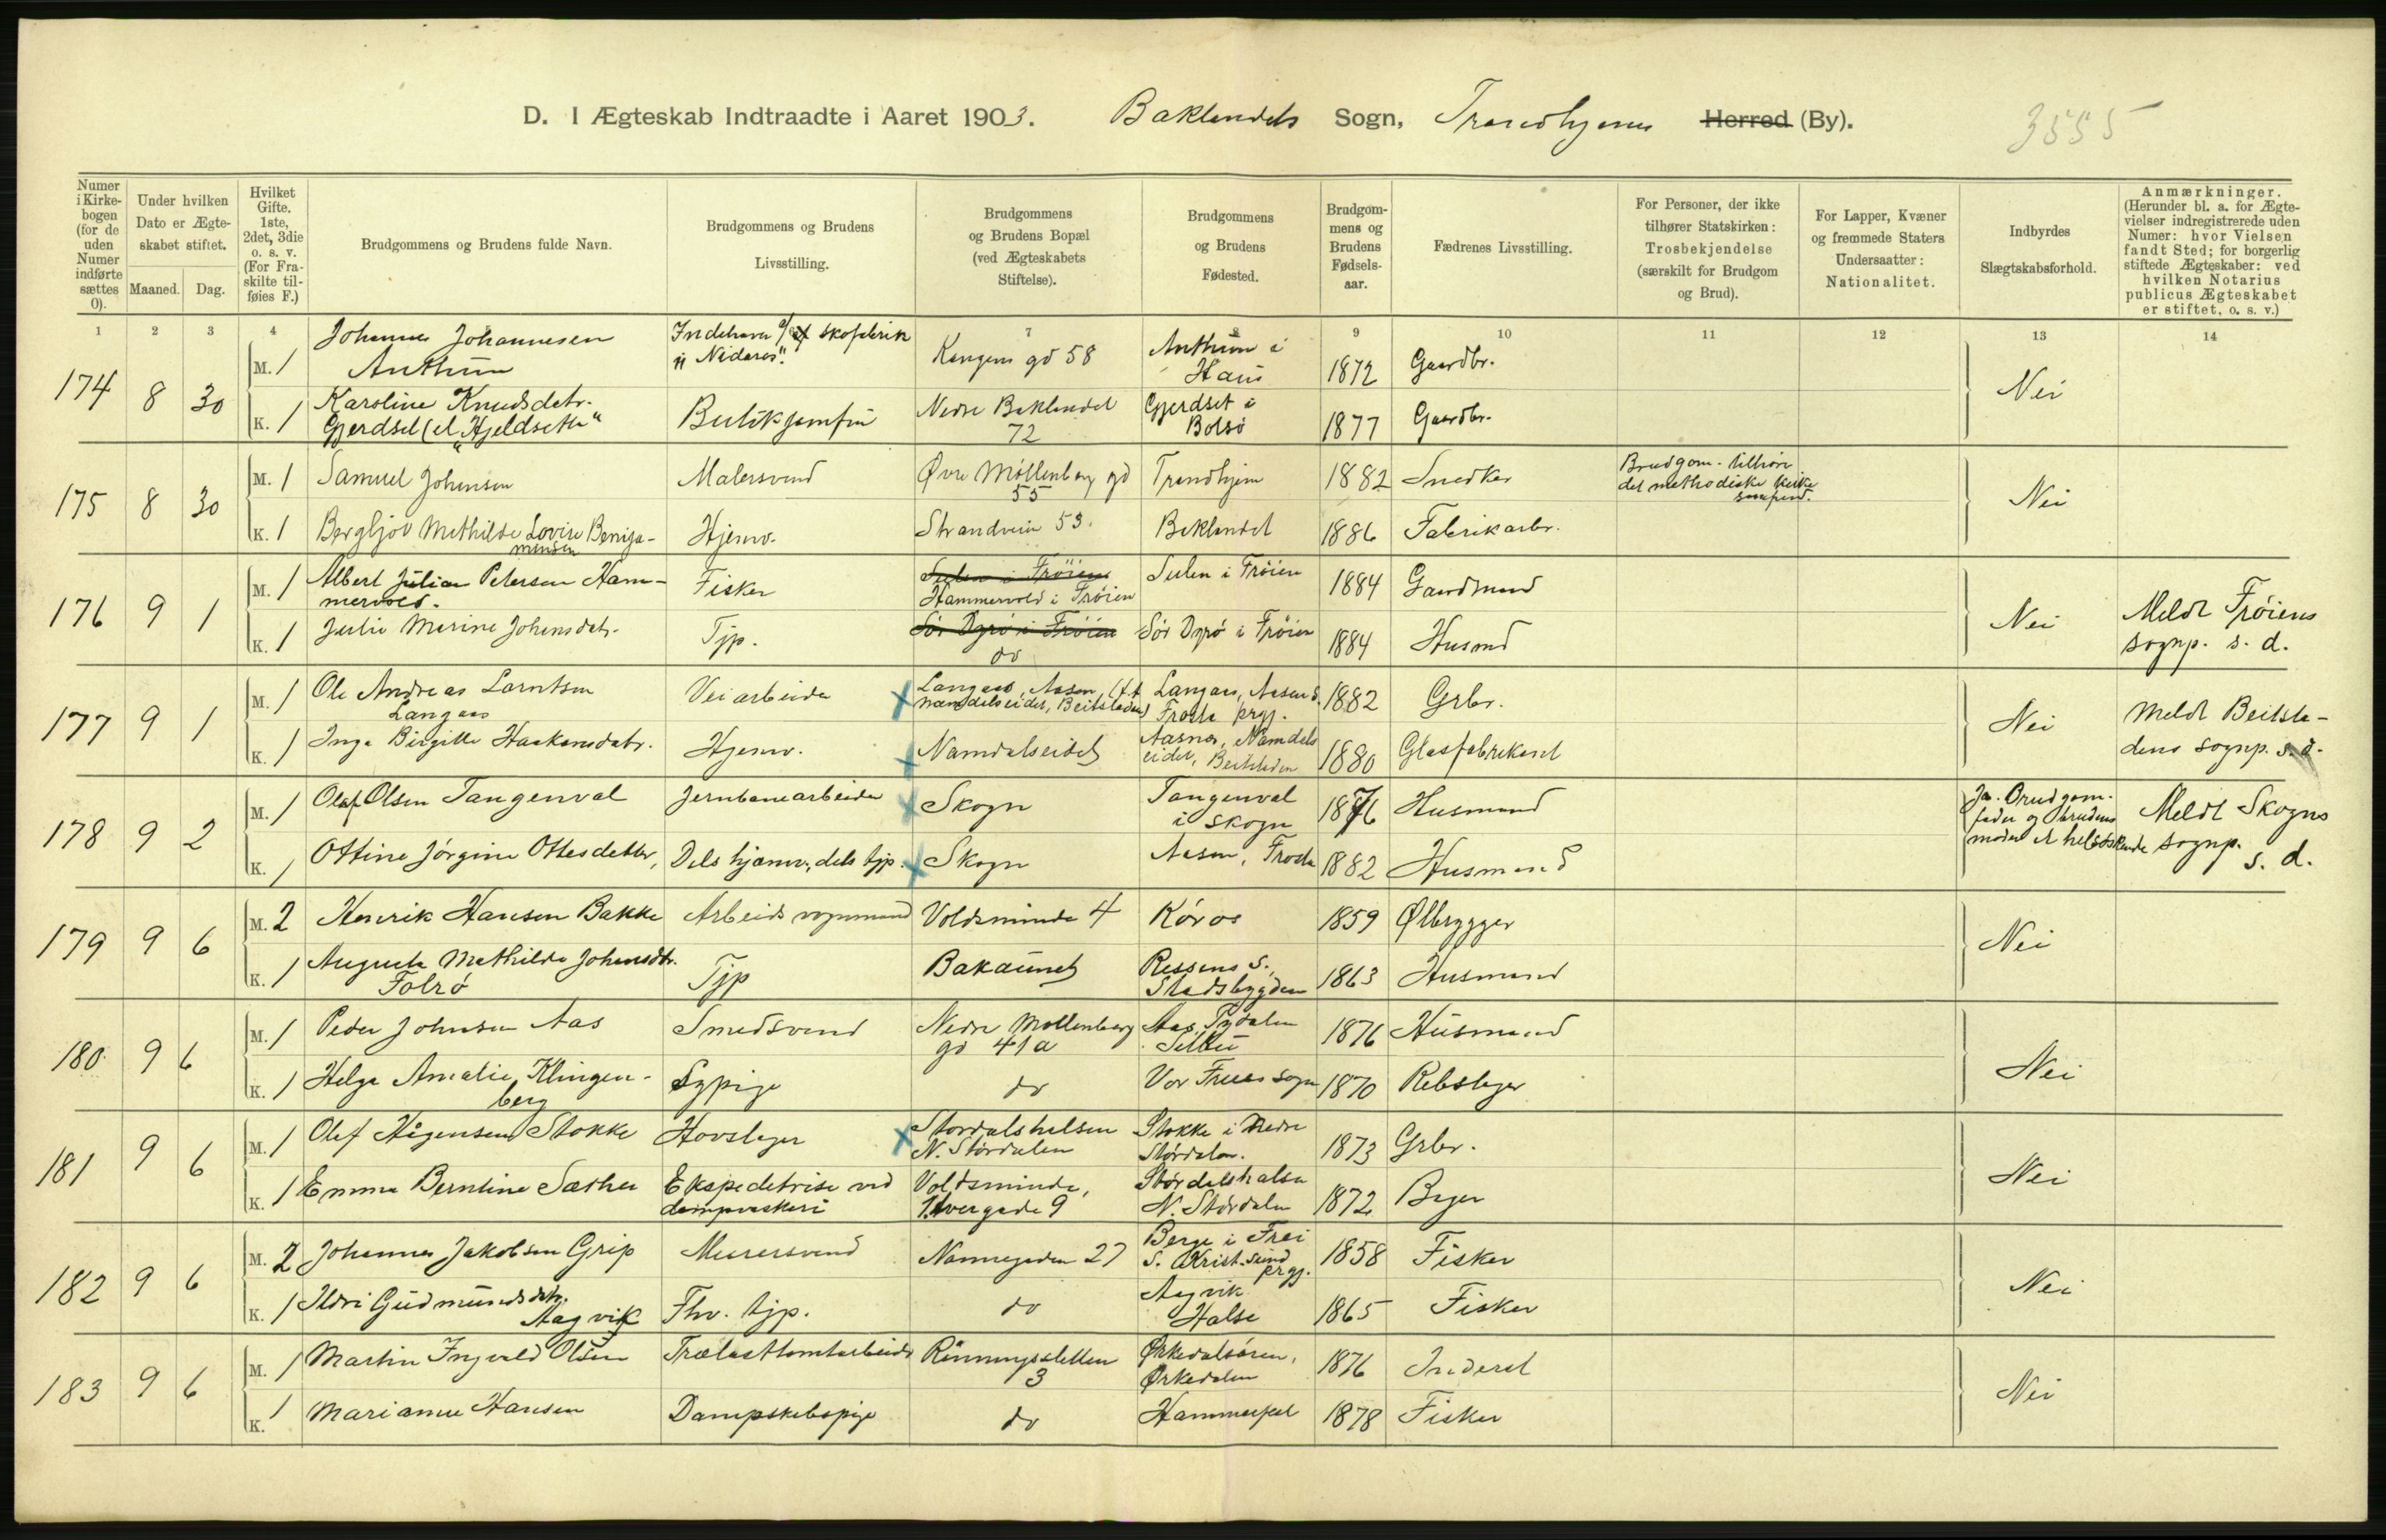 D. I Ægteskab Indtraadte i Aaret 1903. Baklandets Sogn, Trondhjems Herred (By).
3555
Numer i Kirkebogen (for de uden Numer indførte sættes 0).
Under hvilken Dato er Ægteskabet stiftet.
Maaned. Dag.
Hvilket Gifte. 1ste, 2det, 3die o. s. v. (For Fraskilte tilføies F.)
Brudgommens og Brudens fulde Navn.
Brudgommens og Brudens Livsstilling.
Brudgommens og Brudens Bopæl (ved Ægteskabets Stiftelse).
Brudgommens og Brudens Fødested.
Brudgommens og Brudens Fødselsaar.
Fædrenes Livsstilling.
For Personer, der ikke tilhører Statskirken: Trosbekjendelse (særskilt for Brudgom og Brud).
For Lapper, Kvæner og fremmede Staters Undersaatter: Nationalitet.
Indbyrdes Slægtskabsforhold.
Anmærkninger. (Herunder bl. a. for Ægtevielser indregistrerede uden Numer: hvor Vielsen fandt Sted; for borgerlig stiftede Ægteskaber: ved hvilken Notarius publicus Ægteskabet er stiftet, o. s. v.)
1 2 3 4 7 8 9 10 11 12 13 14
174 8 30
M. 1 Johannes Johannesen Anthun Indehaver af skofabrik "Nidaros" Kongens gd 58 Anthun i Haus 1872 Gaardbr. Nei
K. 1 Karoline Knudsdatr. Gjerdset (el. "Hjeldsette" Butikjomfru Nedre Baklandet 72 Gjerdset i Bolsø 1877 Gaardbr.
175 8 30
M. 1 Samuel Johnsen Malersvend Øvre Møllenberg gd 55 Trondhjem 1882 Snedker Brudgom. tilhører det methodiske kirkesamfund. Nei
K. 1 Bergljot Mathilde Lovise Benjaminsen Hjemv. Strandveien 53. Baklandet 1886 Fabrikarbr.
176 9 1
M. 1 Albert Julian Petersen Hammervold. Fisker Sulen i Frøien Hammervold i Frøien Sulen i Frøien 1884 Gaardmand Nei Meldt Frøiens sognp. s. d.
K. 1 Julie Marine Johansdatr. Tjp. Sør Dyrø i Frøien do Sør Dyrø i Frøien 1884 Husmd
177 9 1
M. 1 Ole Andreas Larntsen Langaas Veiarbeider Langaas, Aasen, (f.t. Namdalseidet, Beitstaden) Langaas, Aasen s. Frosta prgj. 1882 Grbr. Nei Meldt Beitstadens sognp. s. d.
K. 1 Inga Birgitte Haakonsdatr. Hjemv. Namdalseidet Aasnes, Namdalseidet, Beitstaden 1880 Glasfabrikant
178 9 2
M. 1 Olaf Olsen Tangenval Jernbanearbeider Skogn Tangenval i Skogn 1876 Husmand Ja. Brudgom. fader og brudens moder er helsøskende Meldt Skogns sognp. s. d.
K. 1 Ottine Jørgine Ottesdatter, Dels hjemv., dels tjp. Skogn Aasen, Frosta 1882 Husmand
179 9 6
M. 2 Henrik Hansen Bakke Arbeidsvognmand Voldsminde 4 Røros 1859 Ølbrygger Nei
K. 1 Augusta Mathilde Johansdtr. Folrø Tjp Bakaunet Rissens s., Stadsbygden 1863 Husmand
180 9 6
M. 1 Peder Johnsen Aas Smedsvend Nedre Møllenberg gd 41a Aas, Tydalen Selbu 1876 Husmand Nei
K. 1 Helga Amalie Klingenberg Sypige do Vor Frues sogn 1870 Rebslager
181 9 6
M. 1 Olaf Hågensen Stokke Hovslager Størdalshalsen N. Størdalen Stokke i Nedre Størdalen. 1873 Grbr. Nei
K. 1 Emma Berntine Sæther Ekspeditrise ved dampvaskeri Voldsminde, Tvergade 9 Størdalshalsen N. Størdalen 1872 Bager
182 9 6
M. 2 Johannes Jakobsen Grip Murersvend Nannegaden 27 Berge i Frei s. Krist.sund prgj. 1858 Fisker Nei
K. 1 Ildri Gudmundsdatr. Aagvik Fhv. tjp. do Aagvik Halse 1865 Fisker
183 9 6
M. 1 Martin Ingvald Olsen Trælasttomtarbeider Rønningsletten 3 Ørkedalsøren, Ørkedalen 1876 Inderst Nei
K. 1 Marianne Hansen Dampskibspige do Hammerfest 1878 Fisker